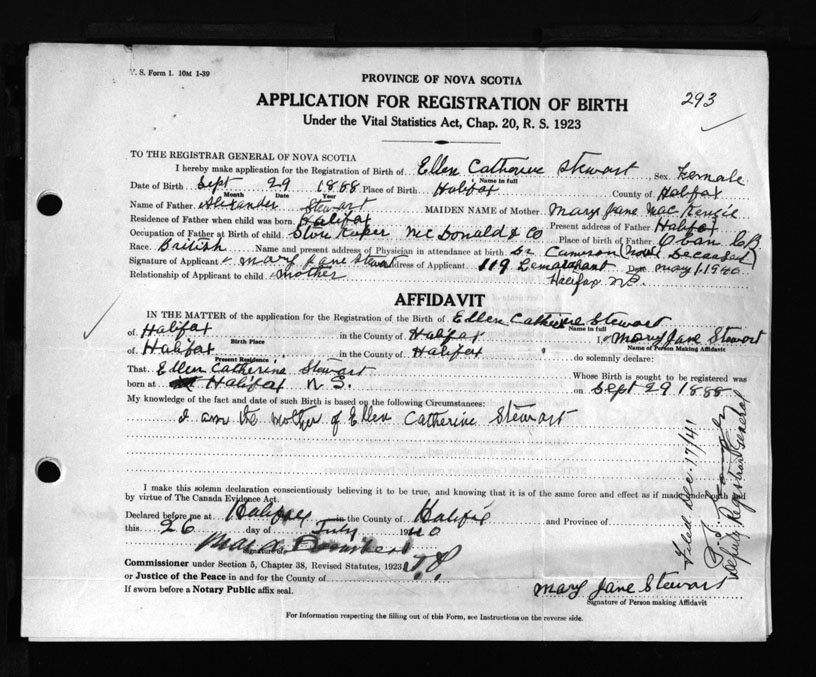 V. S. Form 1. 10M 1-39
PROVINCE OF NOVA SCOTIA
APPLICATION FOR REGISTRATION OF BIRTH
293
Under the Vital Statistics Act, Chap. 20, R. S. 1923
TO THE REGISTRAR GENERAL OF NOVA SCOTIA
I hereby make application for the Registration of Birth of Ellen Catherine Stewart Sex. Female
Name in full
Date of Birth Sept 29 1888 Place of Birth Halifax County of Halifax
Month Date Year
Name of Father Alexander Stewart MAIDEN NAME of Mother Mary Jane MacKenzie
Residence of Father when child was born Halifax Present address of Father Halifax
Occupation of Father at Birth of child Store Keper McDonald & Co Place of birth of Father Oban C.B.
Race. British Name and present address of Physician in attendance at birth Dr Cameron (now Deceased)
Signature of Applicant Mary Jane Stewart Address of Applicant 119 Lemarchant Date May 1. 1940
Relationship of Applicant to child mother Halifax N.S.
AFFIDAVIT
IN THE MATTER of the application for the Registration of the Birth of Ellen Catherine Stewart
Name in full
of Halifax in the County of Halifax I, Mary Jane Stewart
Birth Place Name of Person Making Affidavit
of Halifax in the County of Halifax do solemnly declare:
Present Residence
That Ellen Catherine Stewart Whose Birth is sought to be registered was
born at Halifax N.S. on Sept 29 1888
My knowledge of the fact and date of such Birth is based on the following Circumstances:
I am the mother of Ellen Catherine Stewart
I make this solemn declaration conscientiously believing it to be true, and knowing that it is of the same force and effect as if made under oath and
by virtue of The Canada Evidence Act.
Declared before me at Halifax in the County of Halifax and Province of
this 26 day of July 1940
Commissioner under Section 5, Chapter 38, Revised Statutes, 1923 J.P.
or Justice of the Peace in and for the County of
If sworn before a Notary Public affix seal.
Mary Jane Stewart
Signature of Person making Affidavit
For Information respecting the filling out of this Form, see Instructions on the reverse side.
Filed Dec. 17/41
Deputy Registrar General